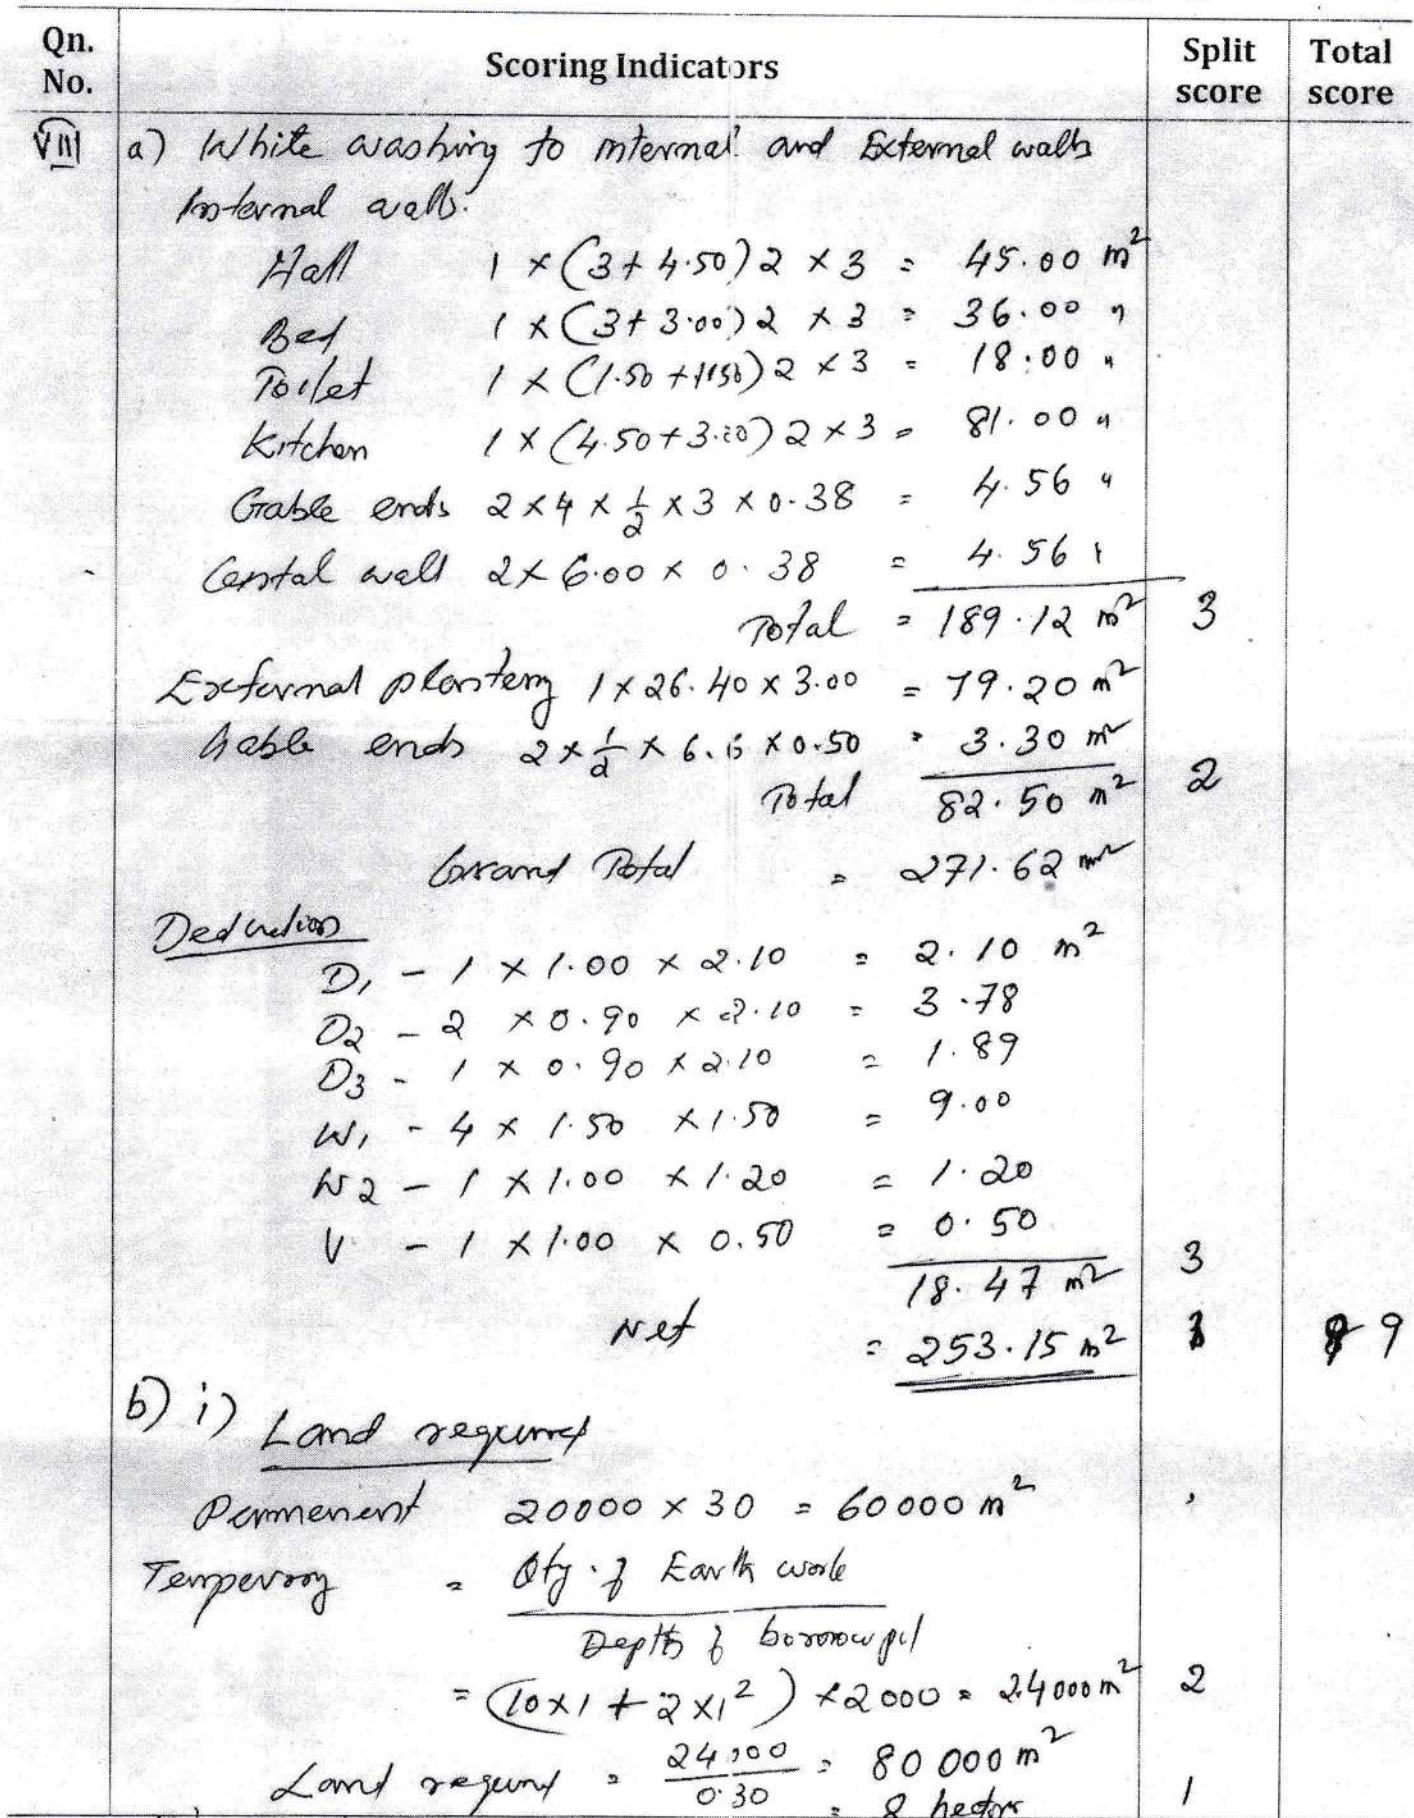 Qn. No. Scoring Indicators Split score Total score
VIII a) White washing to internal and External walls
Internal walls.
Hall 1 × (3 + 4.50) 2 × 3 = 45.00 m²
Bed 1 × (3 + 3.00) 2 × 3 = 36.00 "
Toilet 1 × (1.50 + 1.50) 2 × 3 = 18.00 "
Kitchen 1 × (4.50 + 3.00) 2 × 3 = 81.00 "
Gable ends 2 × 4 × 1/2 × 3 × 0.38 = 4.56 "
Cental wall 2 × 6.00 × 0.38 = 4.56 "
Total = 189.12 m² 3
External plastering 1 × 26.40 × 3.00 = 79.20 m²
Gable ends 2 × 1/2 × 6.6 × 0.50 = 3.30 m²
Total 82.50 m² 2
Grand Total = 271.62 m²
Deduction
D1 - 1 × 1.00 × 2.10 = 2.10 m²
D2 - 2 × 0.90 × 2.10 = 3.78
D3 - 1 × 0.90 × 2.10 = 1.89
W1 - 4 × 1.50 × 1.50 = 9.00
W2 - 1 × 1.00 × 1.20 = 1.20
V - 1 × 1.00 × 0.50 = 0.50
18.47 m² 3
Net = 253.15 m² 1 9
b) i) Land required
Permenent 20000 × 30 = 60000 m²
Temperory = Qty. of Earth work
Depth of borrow pit
= (10×1 + 2×1²) × 2000 = 24000 m² 2
Land required = 24000 / 0.30 = 80 000 m²
= 8 hectors 1